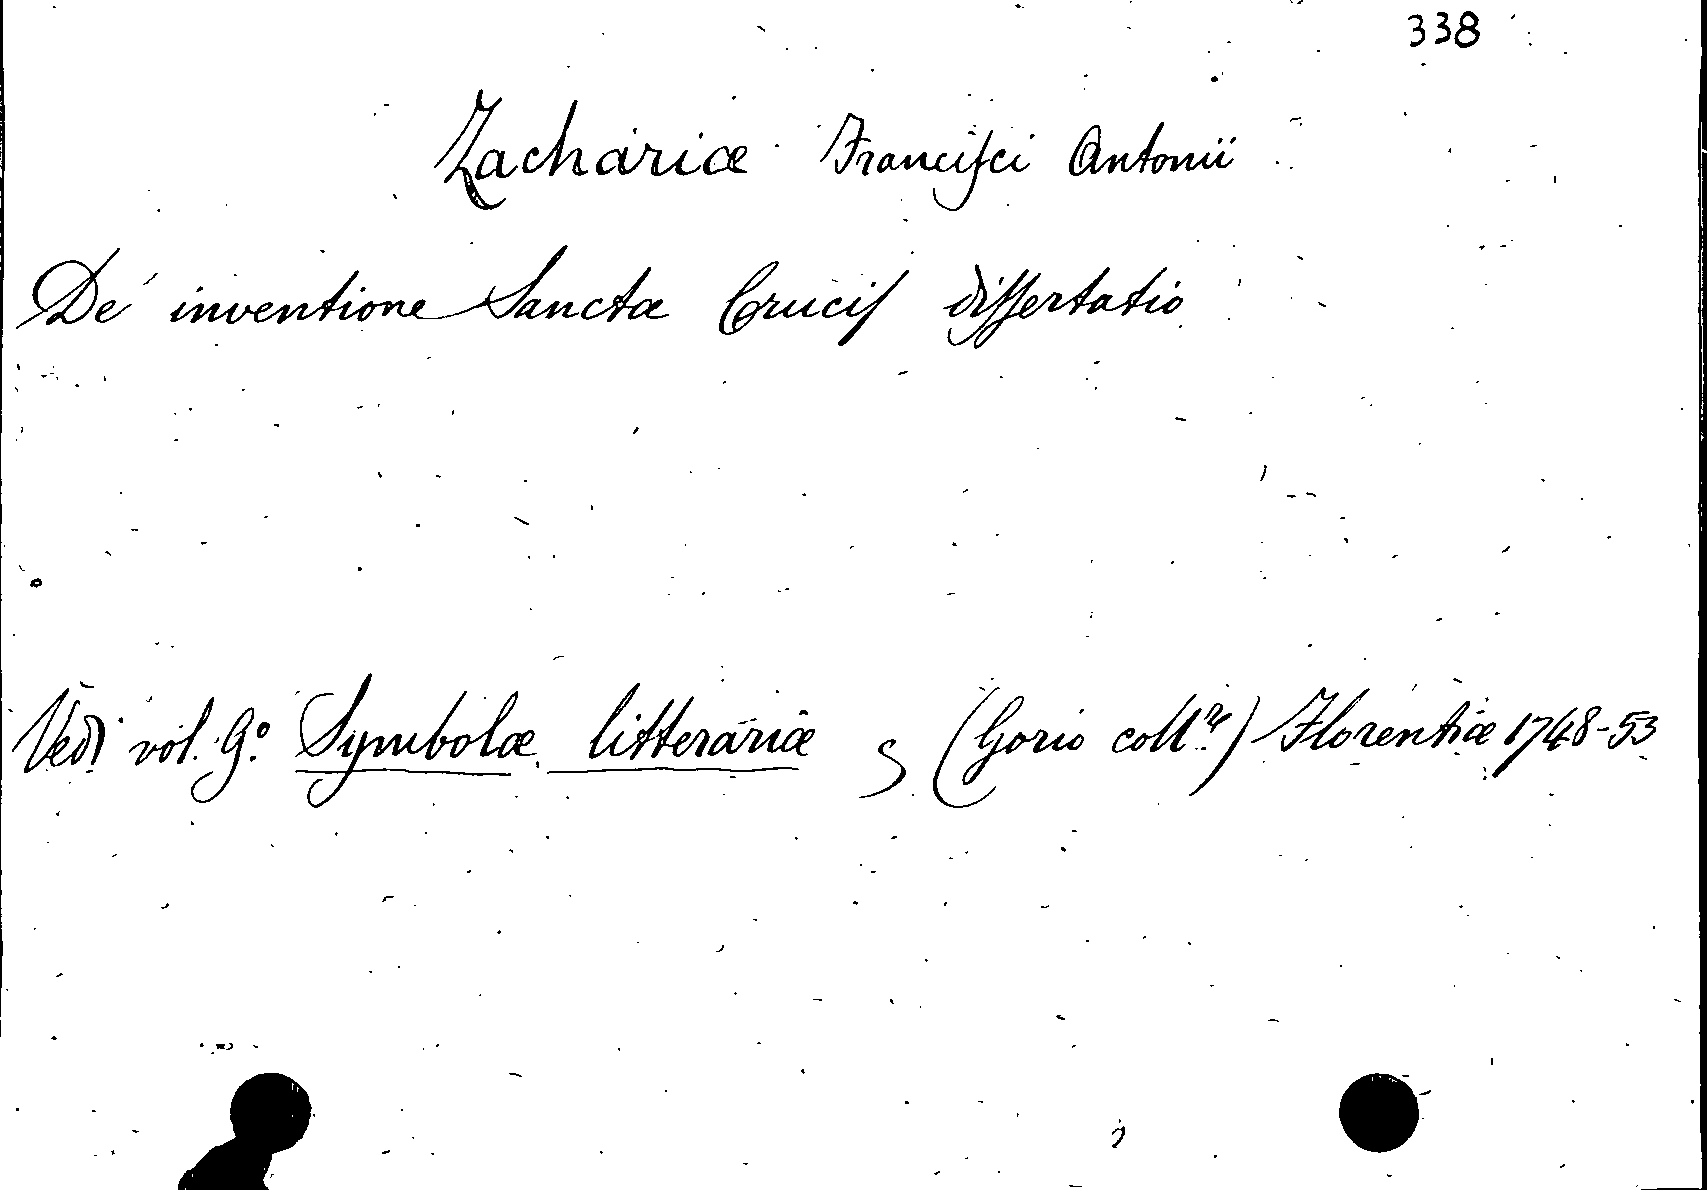 338
Zachariæ Francisci Antonii
De inventione Sanctæ Crucis dissertatio
Vedi vol. 9º Symbolæ litterariæ, (Gorio coll.r) Florentiæ 1748-53